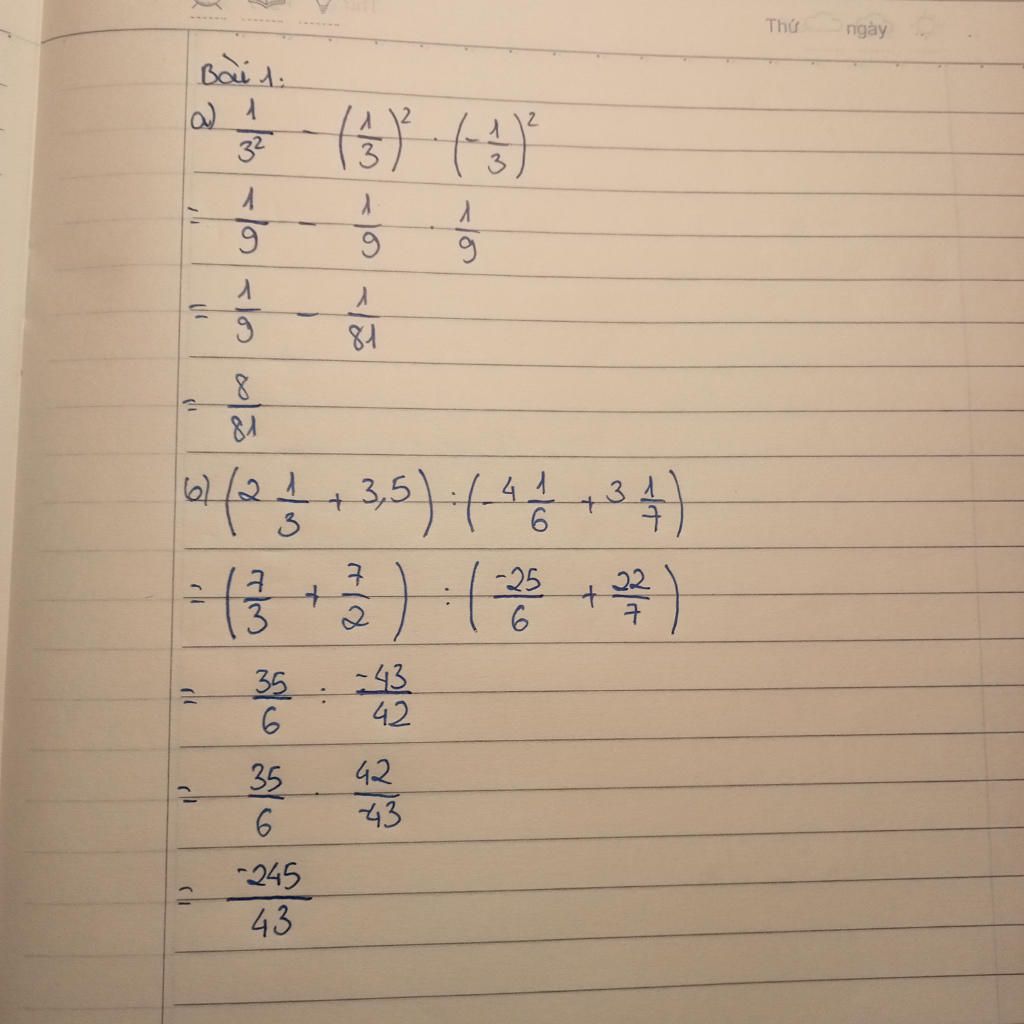 Thứ ngày
Bài 1:
a) 1/3² - (1/3)² . (-1/3)²
= 1/9 - 1/9 . 1/9
= 1/9 - 1/81
= 8/81
b) (2 1/3 + 3,5) : (-4 1/6 + 3 1/7)
= (7/3 + 7/2) : (-25/6 + 22/7)
= 35/6 : -43/42
= 35/6 . 42/-43
= -245/43